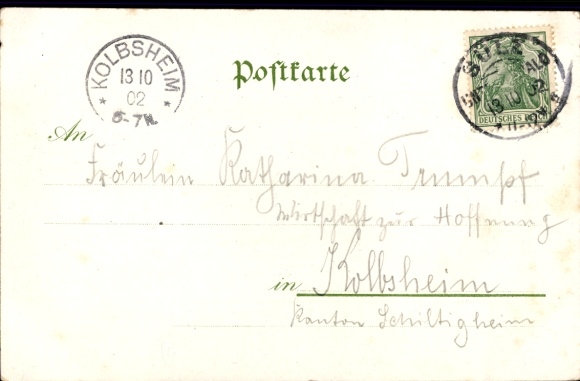 KOLBSHEIM
13 10
02
6-7N.
Postkarte
DEUTSCHES REICH
13 10 02
An
Fräulein Katharina Trumpf
Wirtschaft zur Hoffnung
in Kolbsheim
Kanton Schiltigheim